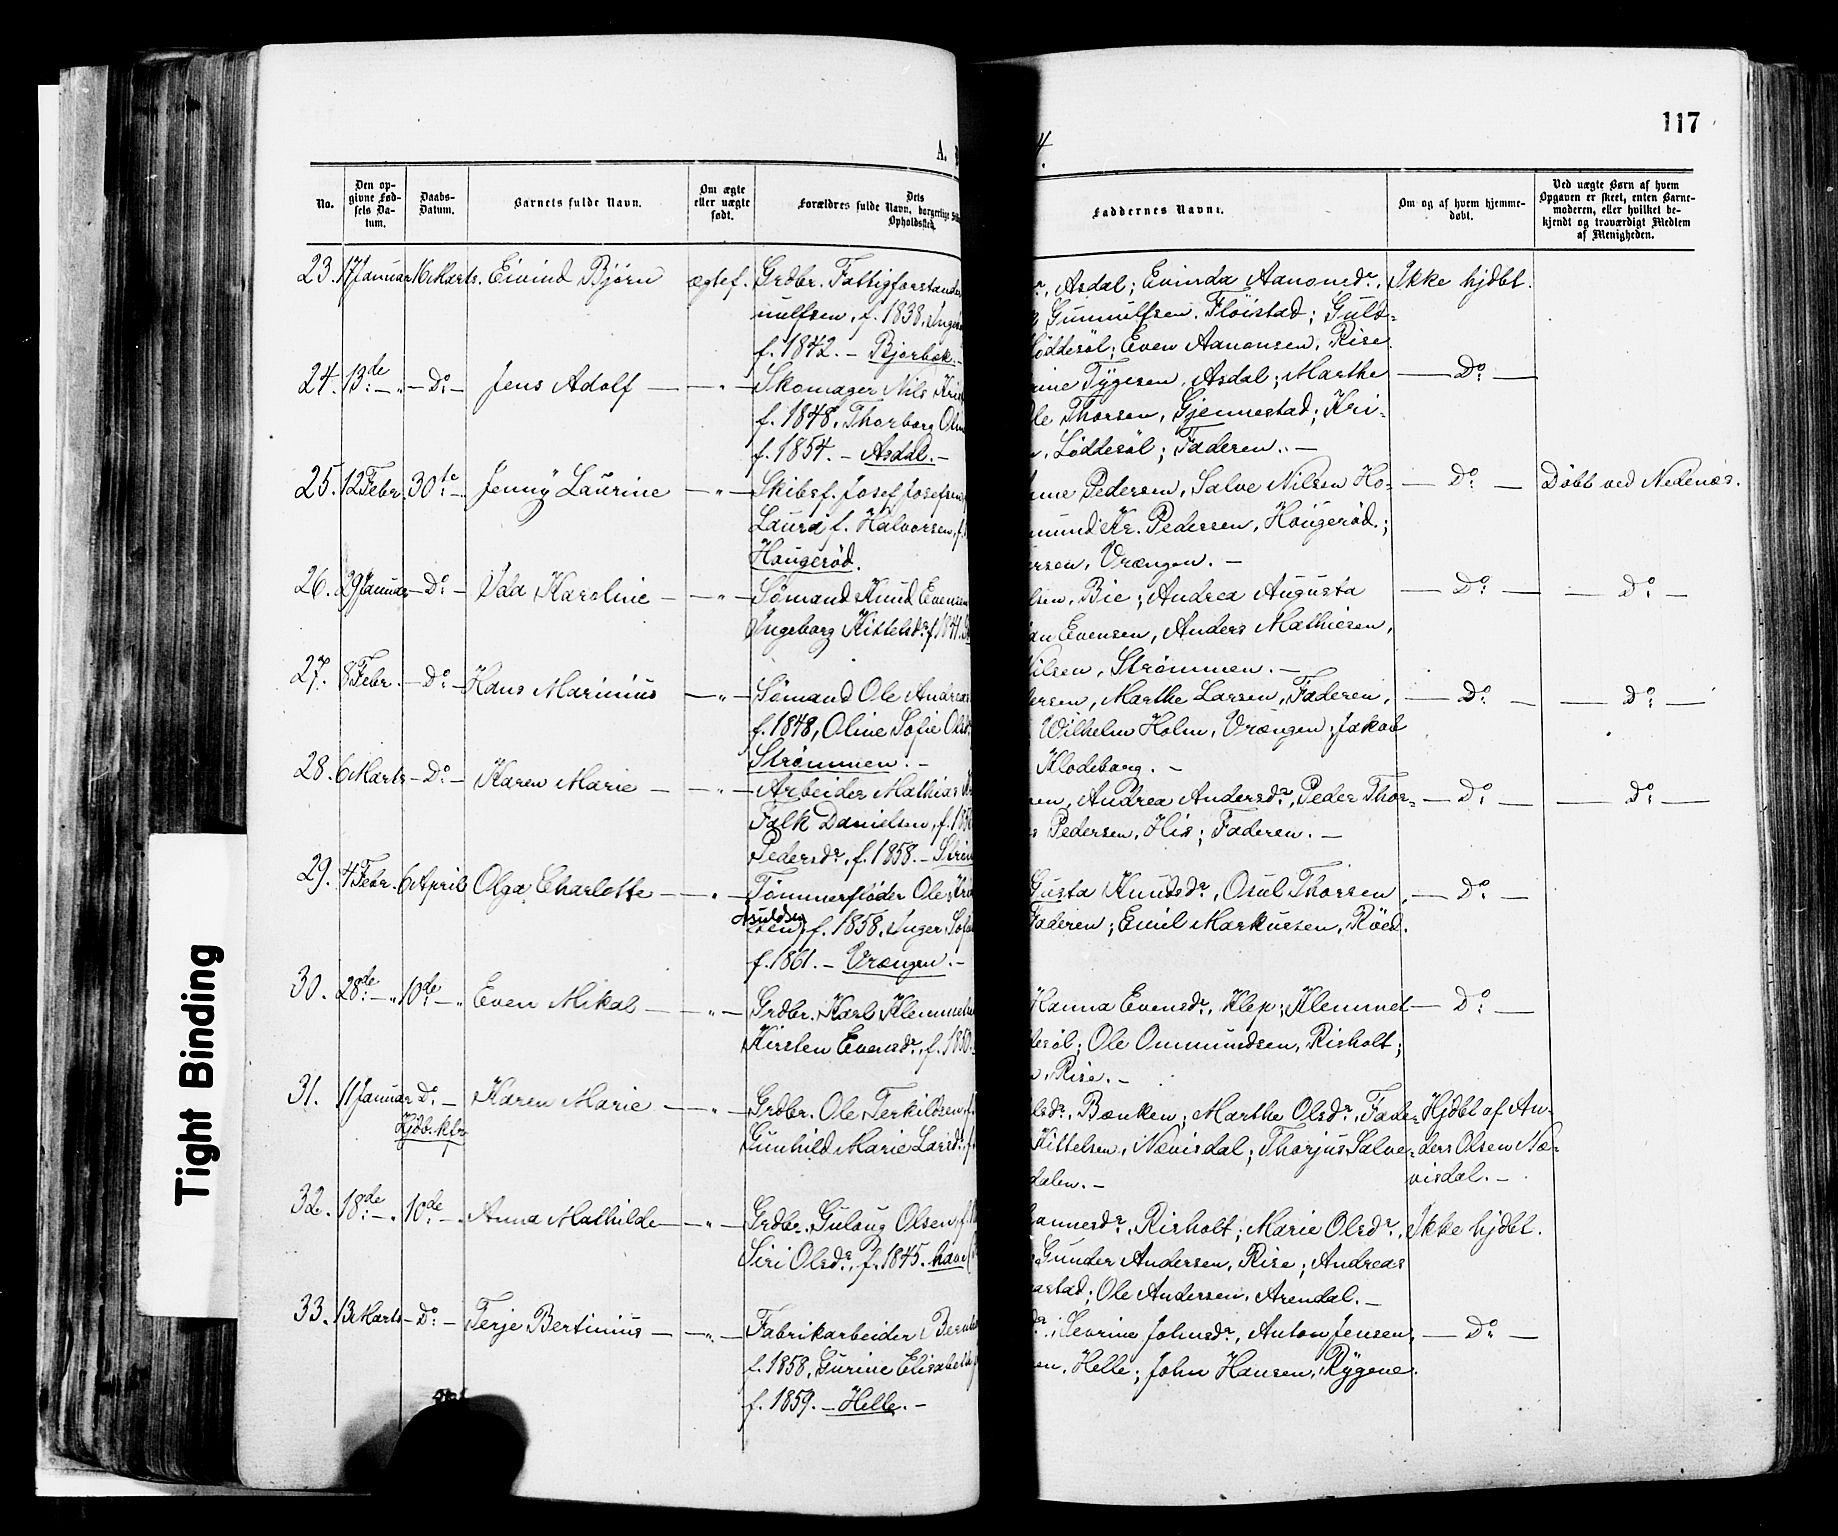 117
A.
4
No.
Den op-
givne Fød-
sels Da-
tum.
Daabs-
Datum.
Barnets fulde Navn.
Om ægte
eller uægte
født.
Dets
Forældres fulde Navn, borgerlige
Opholdssted.
Faddernes Navne.
Om og af hvem hjemme-
døbt.
Ved uægte Børn af hvem
Opgaven er skeet, enten Barne-
moderen, eller hvilket be-
kjendt og troværdigt Medlem
af Menigheden.
23. 17 Januar 16 Marts. Eivind Bjørn ægtef. Grdbr. Fattigforstander
nulfsen, f. 1838,
f. 1842. - Bjorbæk. -
Asdal; Evinda Aanonsdr. Ikke hjdbt.
Gunnulfsen, Fløistad; Gulb-
Løddesøl; Even Aanonsen, Rise.
24. 13de - " - Do - Jens Adolf - " - Skomager Nils
f. 1848, Thorborg
f. 1854. - Asdal. -
Tygesen, Asdal; Marthe - Do -
Thorsen, Gjennestad; Kri-
Løddesøl; Faderen. -
25. 12 Febr. 30te - Jenny Laurine - " - Skibsf. Josef Josefsen
Laura f. Halvorsen, f.
Haugerød.
Pedersen, Salve Nilsen Ho- - Do - Døbt ved Nedenæs.
mund Kr. Pedersen, Hougerød;
Vrængen. -
26. 29 Januar - Do - Vala Karoline - " - Sømand Knud Evensen
Ingeborg Kittelsdr. f. 1841.
Bie; Andrea Augusta - Do - - Do -
Evensen, Anders Mathiesen,
Nilsen, Strømmen. -
27. 8 Febr. - Do - Hans Marinius - " - Sømand Ole Andreas
f. 1848, Oline Sofie
Strømmen. -
Marthe Larsen, Faderen, - Do - - Do -
Wilhelm Holm, Vrængen; Jakob
Klodeborg. -
28. 6 Marts - Do - Karen Marie - " - Arbeider Mathias
Falk Danielsen, f.
Pedersdr., f. 1858. -
Andrea Andersdr., Peder Thor- - Do - - Do -
Pedersen, His; Faderen. -
29. 4 Febr. 6 April Olga Charlotte - " - Tømmerfløder Ole
Asuldsen
f. 1858, Inger
f. 1861. - Vrængen. -
Gusta Knudsdr., Osul Thorsen, - Do -
Faderen; Emil Markusen, Røed.
30. 28de - " 10de - " Even Mikal - " - Grdbr. Karl Klemmet
Kirsten Evensdr., f.
Hanna Evensdr., Klep; Klemmet - Do -
Ole Ommundsen, Risholt;
Rise. -
31. 11 Januar Do - Karen Marie - " - Grdbr. Ole Terkildsen, f.
Hjdb. kfr
Gunhild Marie Larsdr. f.
Bænken; Marthe Olsdr., Fade- Hjdbt af An-
Kittelsen, Nævisdal; Thorjus Salve- ders Olsen Næ-
dalen. - visdal. -
32. 18de - 10de - Anna Mathilde - " - Grdbr. Guloug Olsen, f.
Siri Olsdr., f. 1845.
Risholt; Marie Olsdr., Ikke hjdbt.
Gunder Andersen, Rise; Andreas
Ole Andersen, Arendal. -
33. 13 Marts - Do - Terje Bertinius - " - Fabrikarbeider
f. 1858, Gurine Elisabeth
f. 1859. - Helle. -
Sevrine Johnsdr., Anton Jensen, - Do -
Helle; John Hansen, Rygene.
Tight Binding